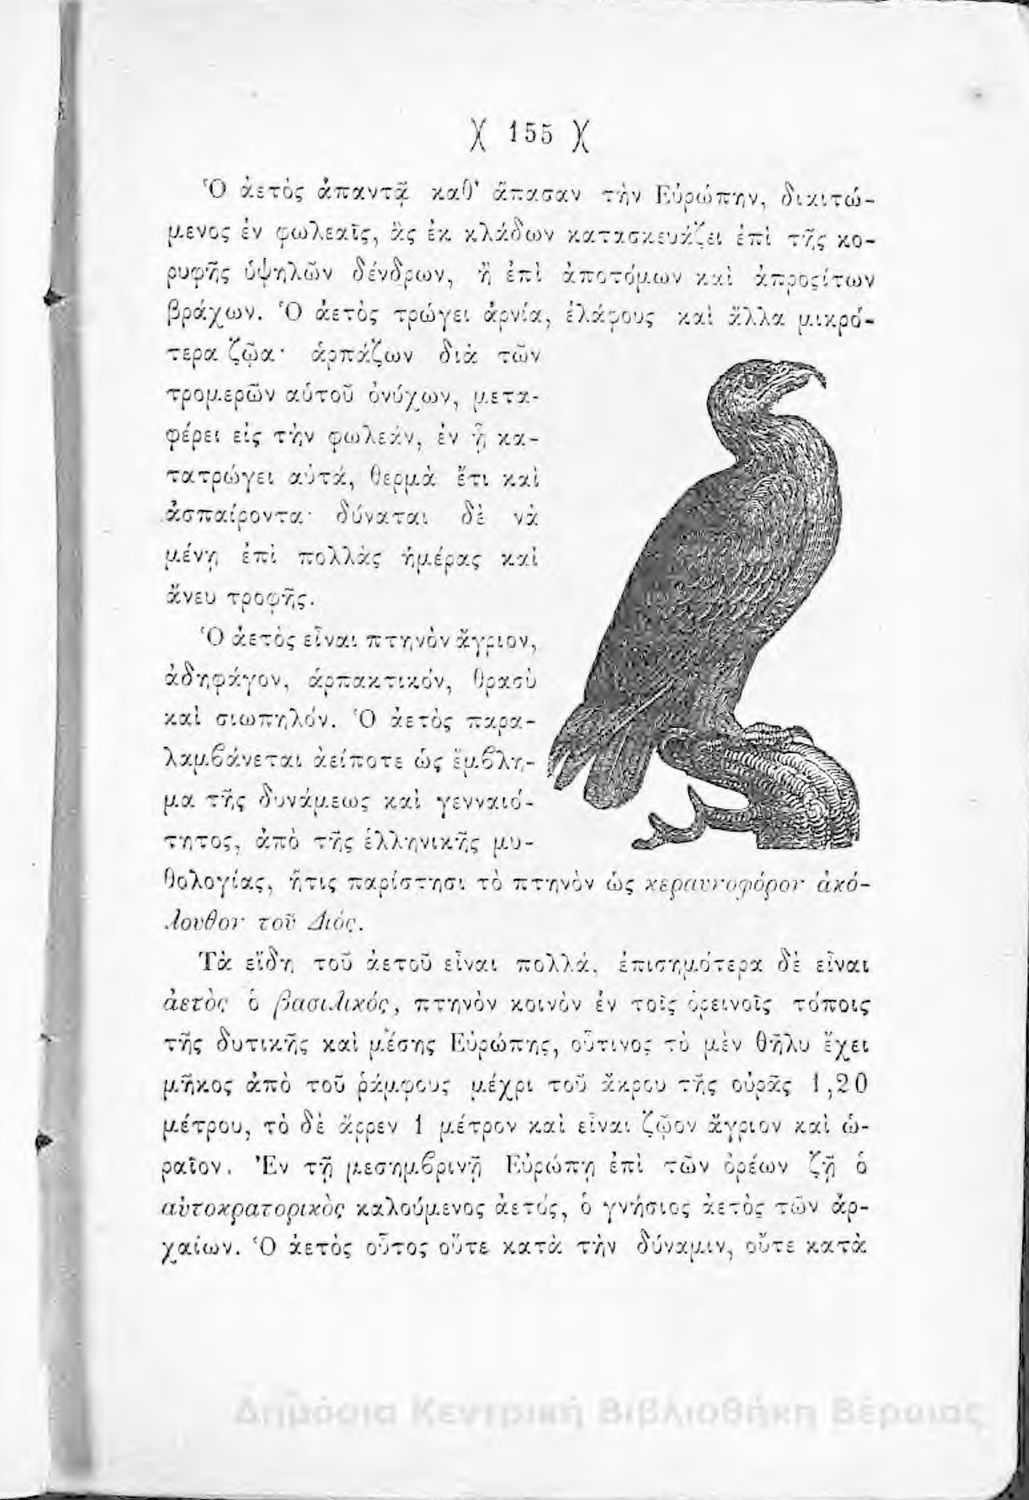 Χ 155 Χ
Ὁ ἀετὸς ἀπαντᾷ καθ' ἅπασαν τὴν Εὐρώπην, διαιτώ-
μενος ἐν φωλεαῖς, ἃς ἐκ κλάδων κατασκευάζει ἐπὶ τῆς κο-
ρυφῆς ὑψηλῶν δένδρων, ἢ ἐπὶ ἀποτόμων καὶ ἀπροςίτων
βράχων. Ὁ ἀετὸς τρώγει ἀρνία, ἐλάφους καὶ ἄλλα μικρό-
τερα ζῷα· ἁρπάζων διὰ τῶν
τρομερῶν αὑτοῦ ὀνύχων, μετα-
φέρει εἰς τὴν φωλεὰν, ἐν ᾗ κα-
τατρώγει αὐτά, θερμὰ ἔτι καὶ
ἀσπαίροντα· δύναται δὲ νὰ
μένῃ ἐπὶ πολλὰς ἡμέρας καὶ
ἄνευ τροφῆς.
Ὁ ἀετὸς εἶναι πτηνὸν ἄγριον,
ἀδηφάγον, ἁρπακτικόν, θρασὺ
καὶ σιωπηλόν. Ὁ ἀετὸς παρα-
λαμβάνεται ἀείποτε ὡς ἔμβλη-
μα τῆς δυνάμεως καὶ γενναιό-
τητος, ἀπὸ τῆς ἑλληνικῆς μυ-
θολογίας, ἥτις παρίστησι τὸ πτηνὸν ὡς κεραυνοφόρον ἀκό-
λουθον τοῦ Διός.
Τὰ εἴδη τοῦ ἀετοῦ εἶναι πολλά, ἐπισημότερα δὲ εἶναι
ἀετὸς ὁ βασιλικός, πτηνὸν κοινὸν ἐν τοῖς ὀρεινοῖς τόποις
τῆς δυτικῆς καὶ μέσης Εὐρώπης, οὗτινος τὸ μὲν θῆλυ ἔχει
μῆκος ἀπὸ τοῦ ῥάμφους μέχρι τοῦ ἄκρου τῆς οὐρᾶς 1,20
μέτρου, τὸ δὲ ἄρρεν 1 μέτρον καὶ εἶναι ζῷον ἄγριον καὶ ὡ-
ραῖον. Ἐν τῇ μεσημβρινῇ Εὐρώπῃ ἐπὶ τῶν ὀρέων ζῇ ὁ
αὐτοκρατορικὸς καλούμενος ἀετός, ὁ γνήσιος ἀετὸς τῶν ἀρ-
χαίων. Ὁ ἀετὸς οὗτος οὔτε κατὰ τὴν δύναμιν, οὔτε κατὰ
Δημόσια Κεντρική Βιβλιοθήκη Βέροιας